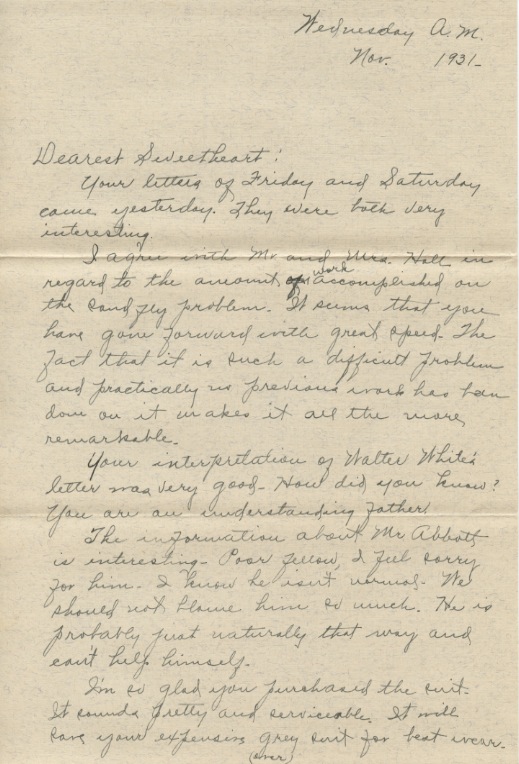 Wednesday A.M.
Nov. 1931-
Dearest Sweetheart:
Your letters of Friday and Saturday
came yesterday. They were both very
interesting.
I agree with Mr and Mrs. Hall in
regard to the amount of work accomplished on
the sandfly problem. It seems that you
have gone forward with great speed. The
fact that it is such a difficult problem
and practically no previous work has been
done on it makes it all the more
remarkable.
Your interpretation of Walter White's
letter was very good. How did you know?
You are an understanding father!
The information about Mr Abbott
is interesting. Poor fellow, I feel sorry
for him. I know he isn't normal. We
should not blame him so much. He is
probably just naturally that way and
can't help himself.
I'm so glad you purchased the suit.
It sounds pretty and serviceable. It will
save your expensive grey suit for best wear.
(over)